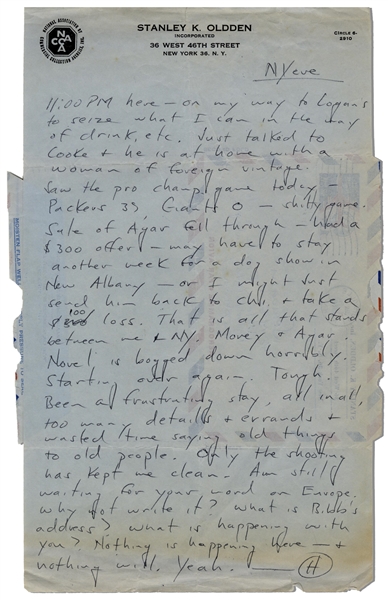 NATIONAL ASSOCIATION OF
COMMERCIAL COLLECTION AGENCIES, INC.
STANLEY K. OLDDEN
INCORPORATED
36 WEST 46TH STREET
NEW YORK 36. N. Y.
CIRCLE 6-
2910
NYeve
11:00 PM here — on my way to Logans
to seize what I can in the way
of drink, etc. Just talked to
Cooke & he is at home with a
woman of foreign vintage.
Saw the pro champ game today —
Packers 39, Giants 0 — shitty game.
Sale of Agar fell through — had a
$300 offer — may have to stay
another week for a dog show in
New Albany — or I might just
send him back to chi. & take a
$100 loss. That is all that stands
between me & NY. Money & Agar.
Novel is bogged down horribly.
Starting over again. Tough.
Been a frustrating stay, all in all,
too many details & errands &
wasted time saying old things
to old people. Only the shooting
has kept me clean. Am still
waiting for your word on Europe,
why not write it? What is Bibb's
address? What is happening with
you? Nothing is happening here — &
nothing will. Yeah. — H